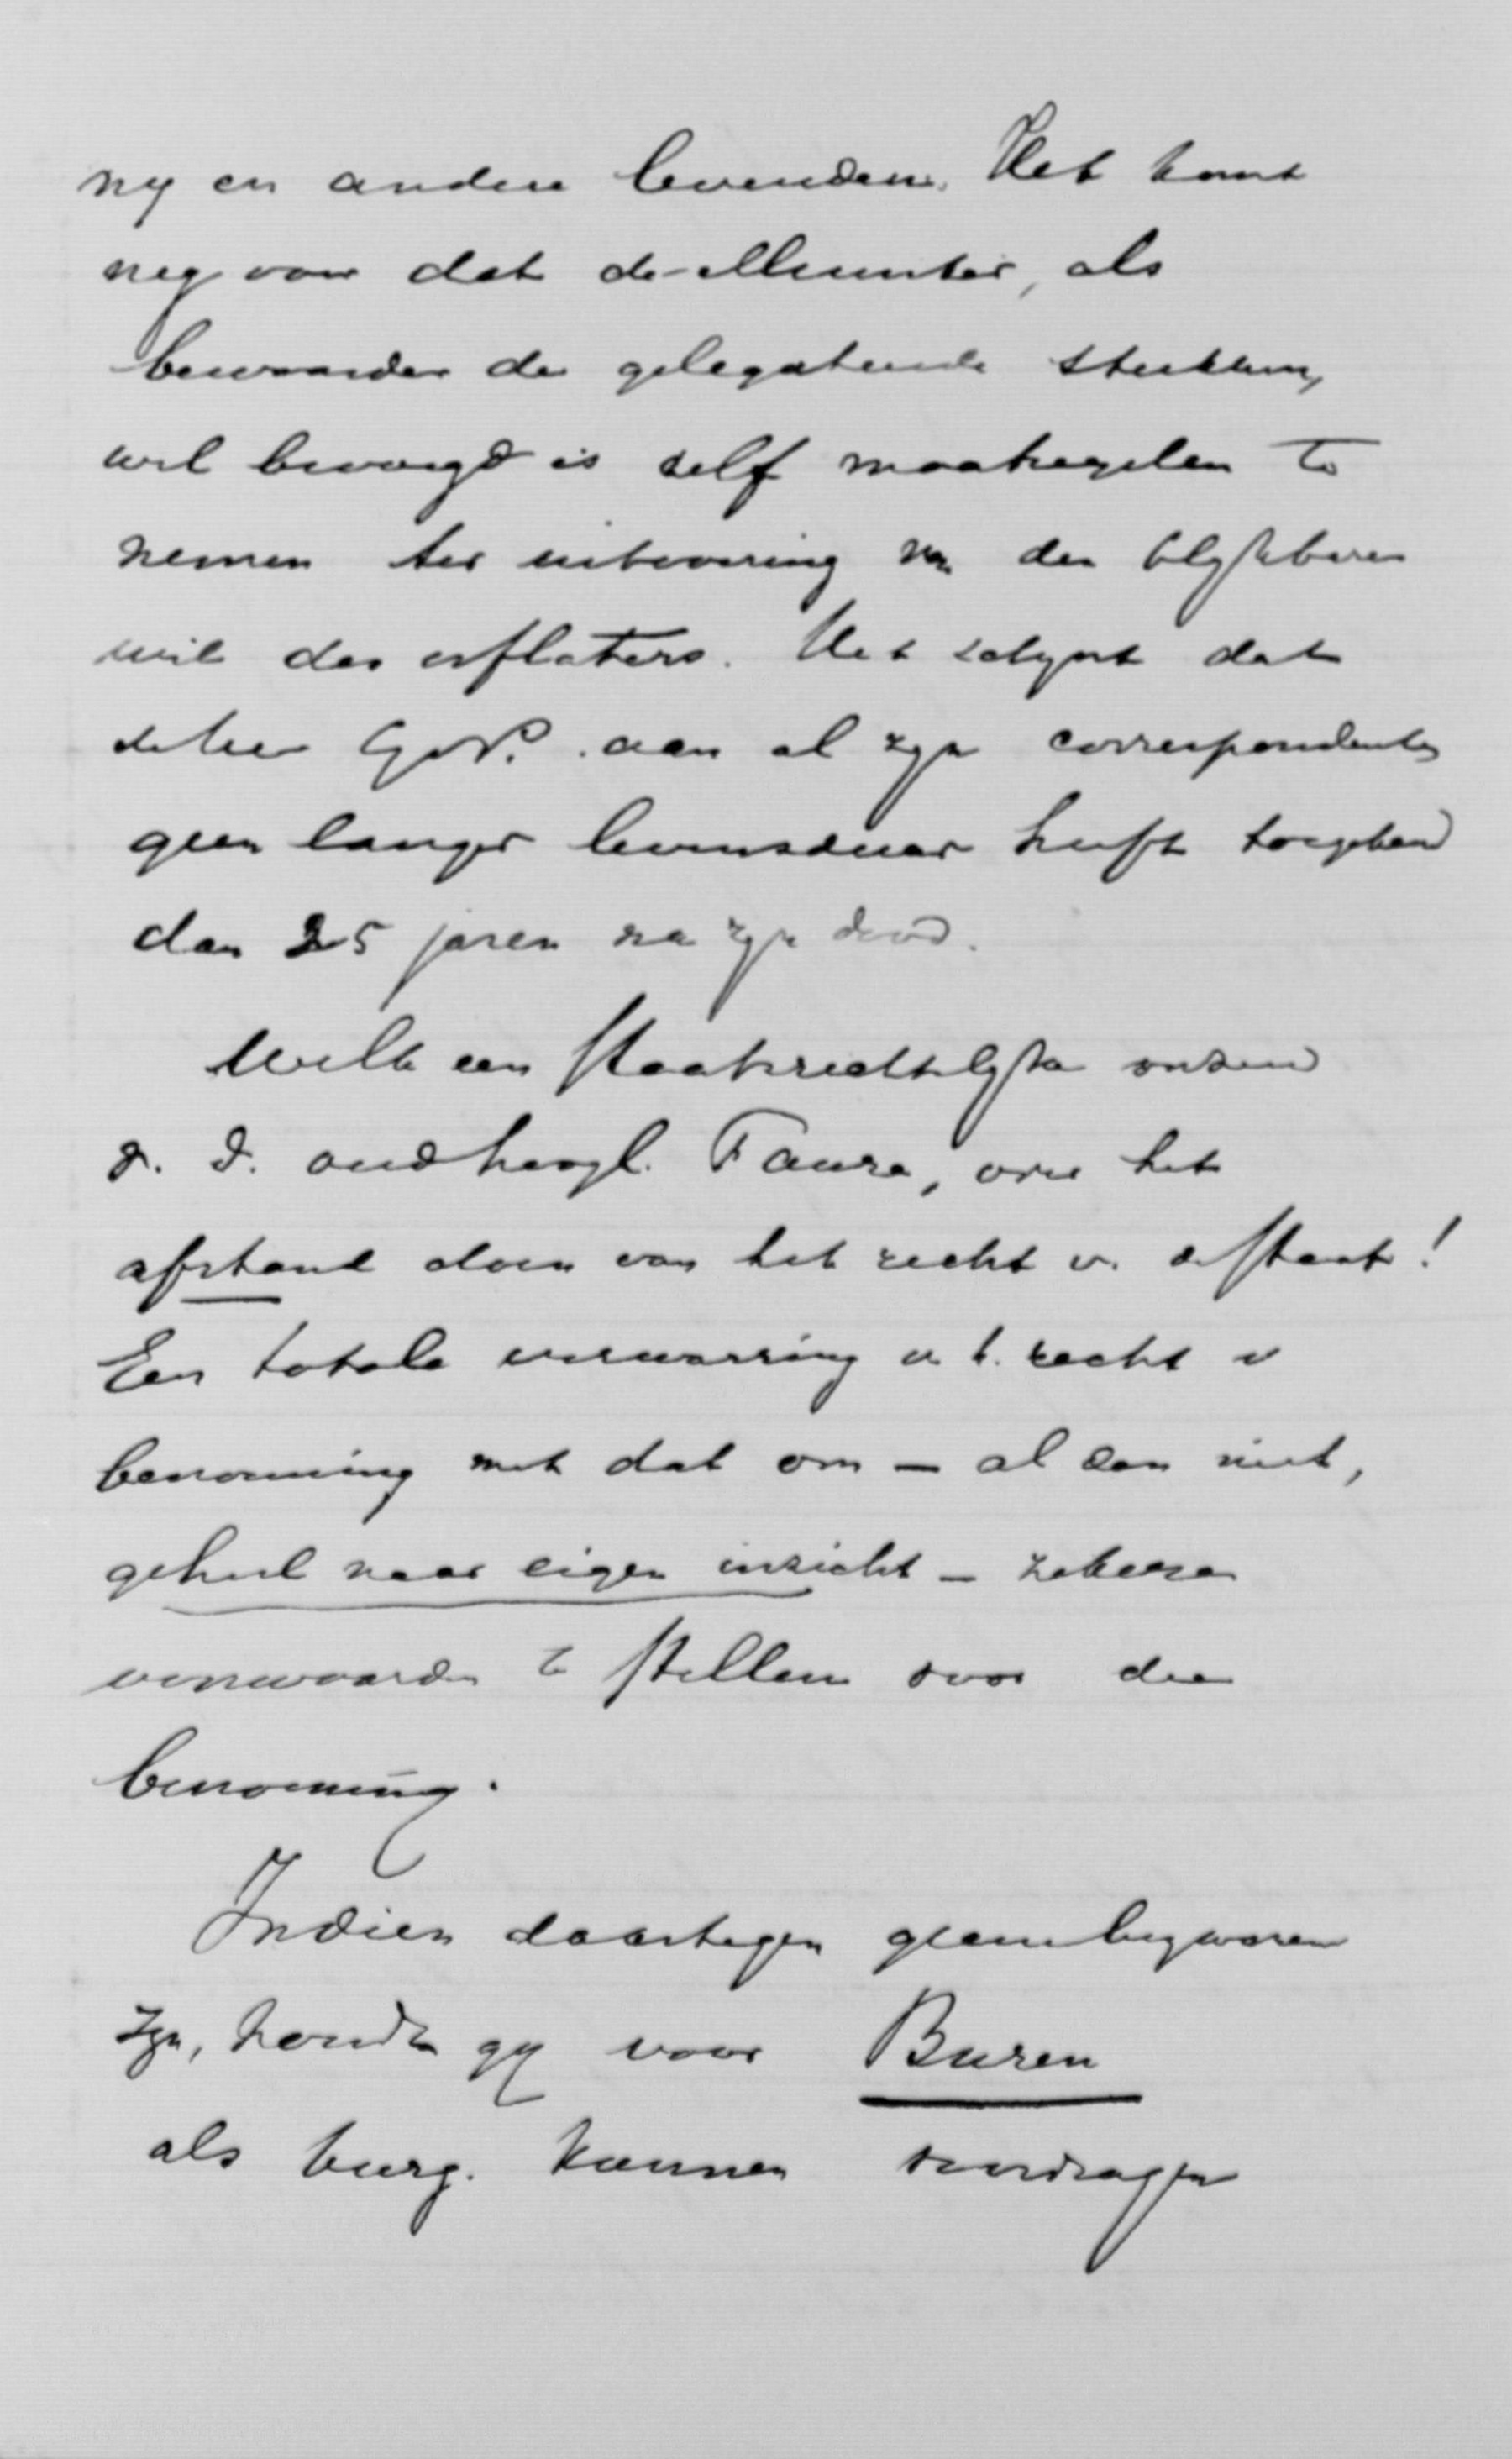 my en andere levenden. Het komt
my voor dat de Minister, als
bewaarder der gelegateerde stukken,
wel bevoegd is zelf maatregelen te
nemen ter uitvoering van den blykbaren
wil des erflaters. Het schynt dat
de heer G v P. aan al zyn correspondenten
geen langer levensduur heeft toegekend
dan 25 jaren na zyn dood.
Welk een staatsrechtelyke onzin
v. d. oudhoogl. Faure, over het
afstand doen van het recht v. d. staat!
Een totale verwarring v. h. recht v
benoeming met dat om — al dan niet,
geheel naar eigen inzicht — zekere
voorwaarden te stellen voor die
benoeming.
Indien daartegen geen bezwaren
zyn, zoudt gy voor Buren
als burg. kunnen voordragen